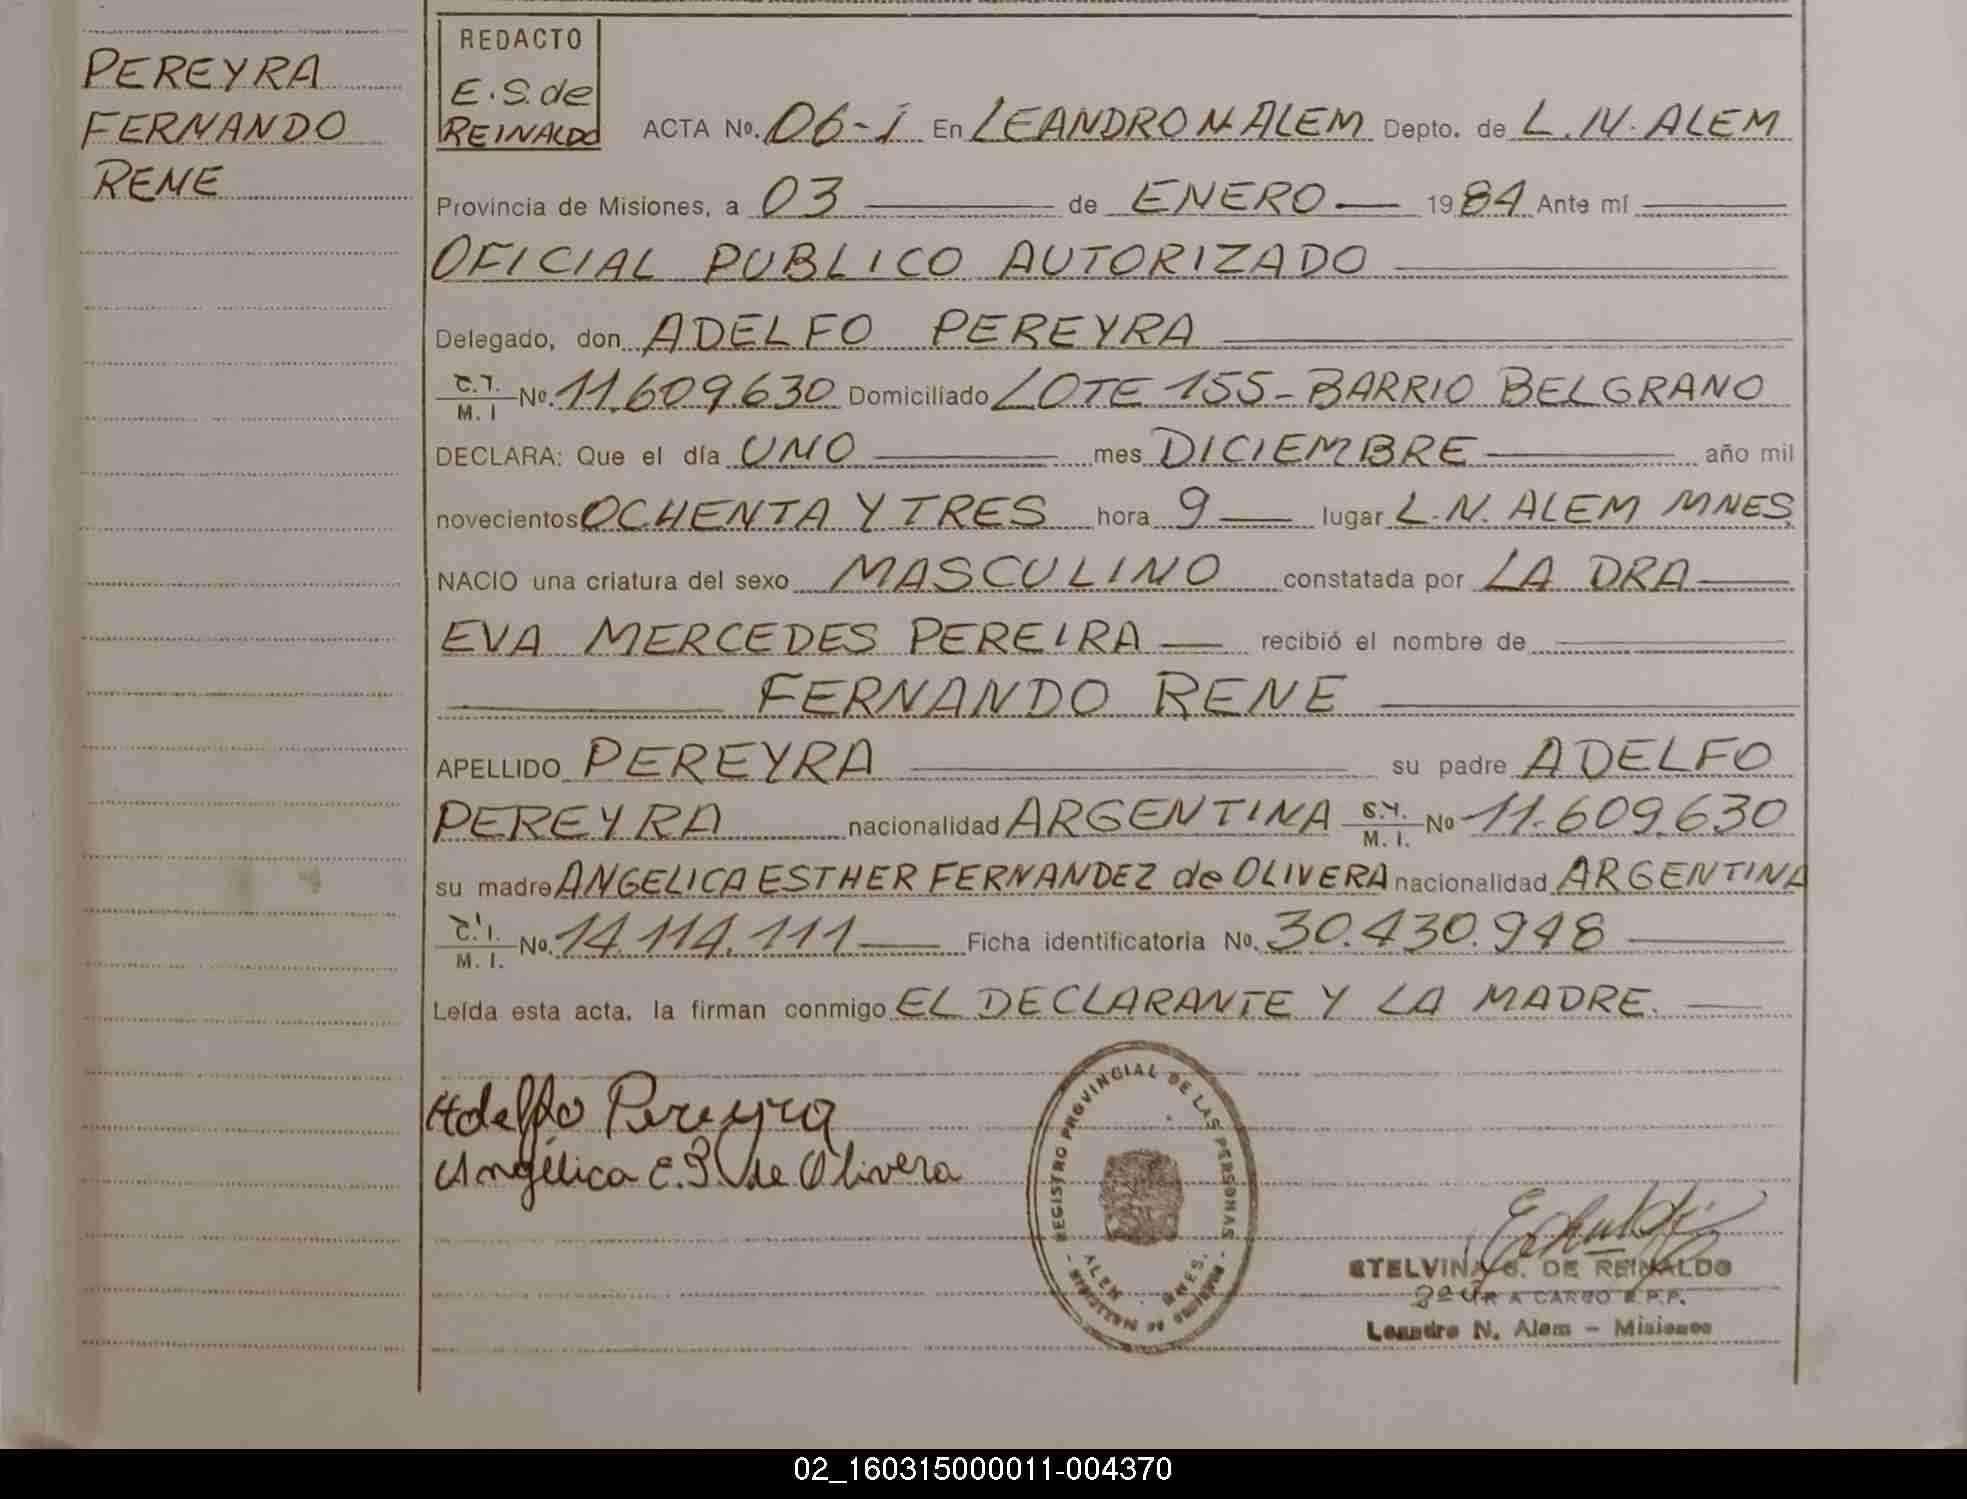 PEREYRA
FERNANDO
RENE
REDACTO
E.S. de
REINALDO
ACTA Nº. 06-i En LEANDRO N. ALEM Depto. de L.N. ALEM
Provincia de Misiones, a 03 de ENERO 1984 Ante mí
OFICIAL PUBLICO AUTORIZADO
Delegado, don ADELFO PEREYRA
C.I. M.I Nº. 11.609.630 Domiciliado LOTE 155-BARRIO BELGRANO
DECLARA: Que el día UNO mes DICIEMBRE año mil
novecientos OCHENTA Y TRES hora 9 lugar L.N. ALEM MNES.
NACIO una criatura del sexo MASCULINO constatada por LA DRA
EVA MERCEDES PEREIRA recibió el nombre de
FERNANDO RENE
APELLIDO PEREYRA su padre ADELFO
PEREYRA nacionalidad ARGENTINA M.I. Nº 11.609.630
su madre ANGELICA ESTHER FERNANDEZ de OLIVERA nacionalidad ARGENTINA
C.I. M.I. Nº. 14.114.111 Ficha identificatoria Nº. 30.430.948
Leída esta acta, la firman conmigo EL DECLARANTE Y LA MADRE.
Adelfo Pereyra
Angélica E. de Olivera
REGISTRO PROVINCIAL DE LAS PERSONAS
ALEM MNES.
ETELVINA S. DE REINALDO
A CARGO R.P.P.
Leandro N. Alem - Misiones
02_160315000011-004370